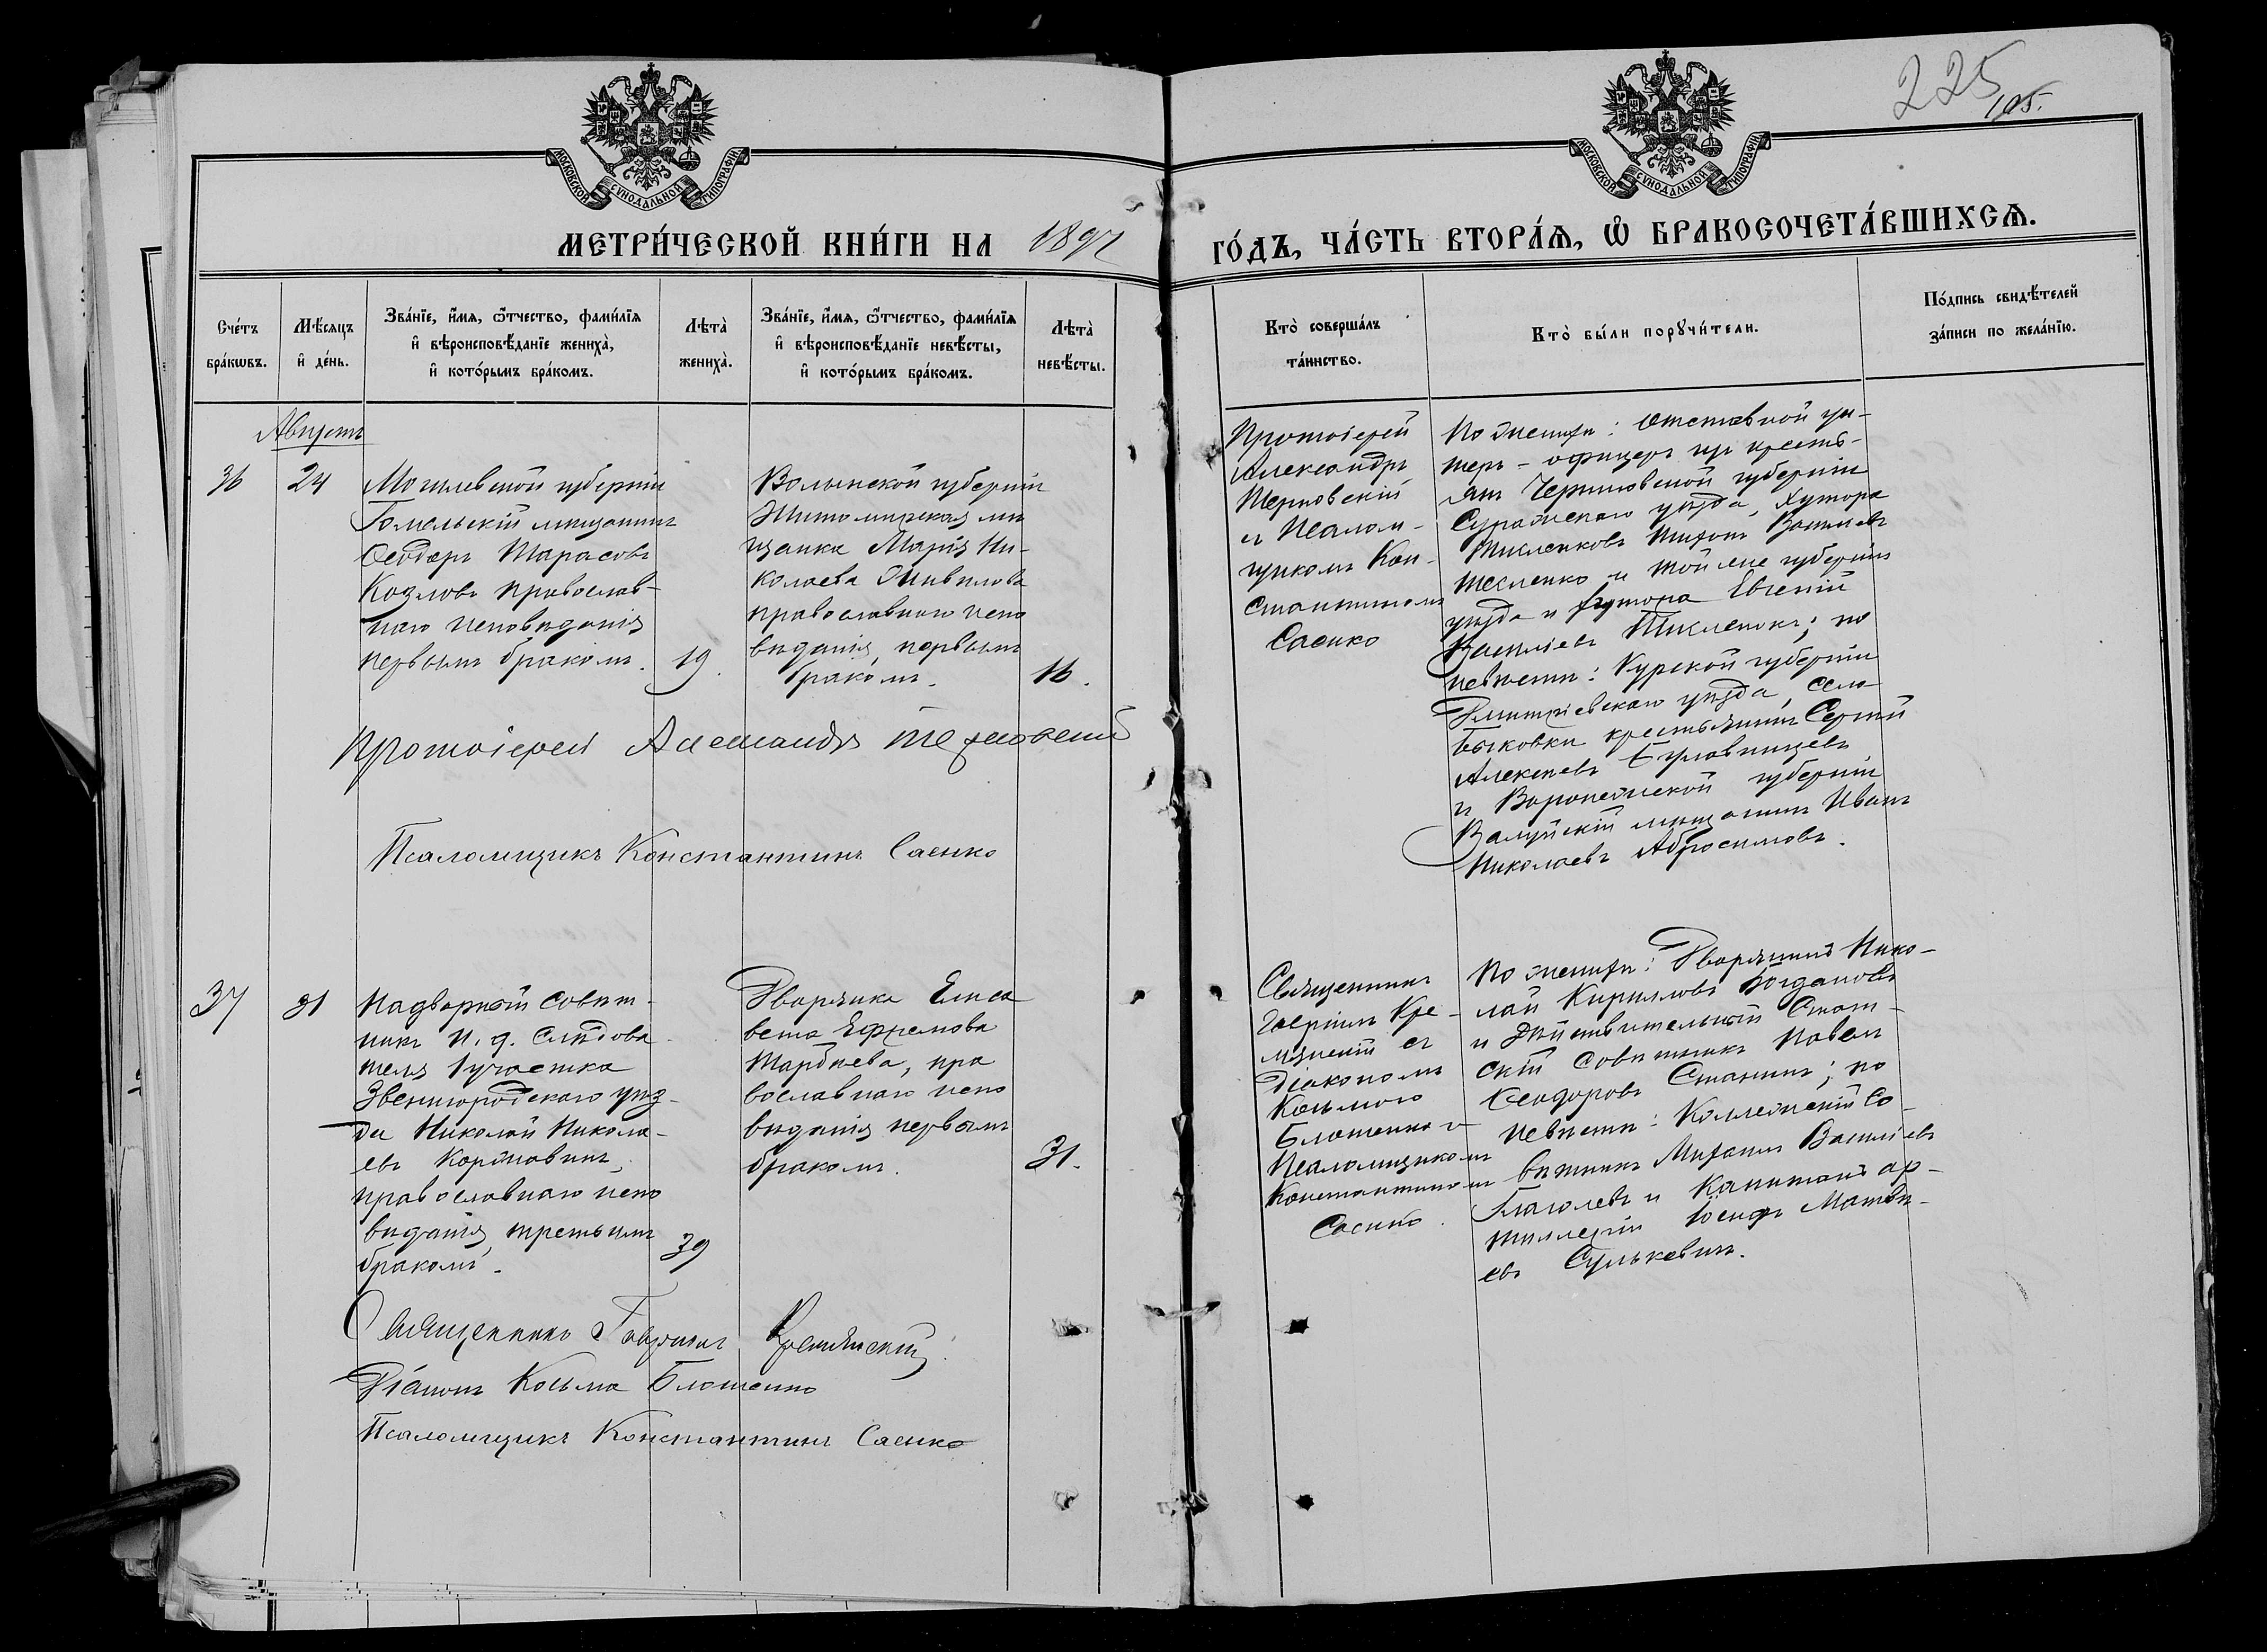 225
105.
МОСКОВСКОЙ СУНОДАЛЬНОЙ ТИПОГРАФІИ
МОСКОВСКОЙ СУНОДАЛЬНОЙ ТИПОГРАФІИ
МЕТРИ́ЧЕСКОЙ КНИ́ГИ НА 1897 ГО́ДЪ, ЧА́СТЬ ВТОРА́Ѧ, Ѡ БРАКОСОЧЕТА́ВШИХСѦ.
Сче́тъ бра́кѡвъ.
Мѣ́сяцъ и де́нь.
Зва́нїе, и́мя, ѻ́тчество, фами́лїя
и вѣроисповѣ́данїе жениха̀,
и кото́рымъ бра́комъ.
Лѣта̀ жениха̀.
Зва́нїе, и́мя, ѻ́тчество, фами́лїя
и вѣроисповѣ́данїе невѣ́сты,
и кото́рымъ бра́комъ.
Лѣта̀ невѣ́сты.
Кто̀ соверша́лъ
та́инство.
Кто̀ бы́ли порꙋчи́тели.
По́дпись свидѣ́телей
за́писи по жела́нїю.
Августъ
36
24
Могилевской губерніи
Гомельскій мѣщанинъ
Ѳеодоръ Тарасовъ
Козловъ православ-
наго исповѣданія
первымъ бракомъ.
19.
Волынской губерніи
Житомирская мѣ
щанка Марія Ни-
колаева
православнаго испо
вѣданія, первымъ
бракомъ.
16.
Протоіерей
Александръ
Терновскій
съ Псалом-
щикомъ Кон-
стантиномъ
Саенко
По женихѣ: Отставной ун-
теръ-офицеръ изъ кресть-
янъ Черниговской губерніи
Суражскаго уѣзда, хутора
Васильевъ
и той же губерніи
уѣзда и хутора Евгеній
Василіевъ по
невѣстѣ: Курской губерніи
Дмитріевскаго уѣзда, села
Быковки крестьянинъ Сергѣй
Алексѣевъ Булавинцевъ
и Воронежской губерніи
Валуйскій мѣщанинъ Иванъ
Николаевъ Абросимовъ.
Протоіерей Александръ Терновскій
Псаломщикъ Константинъ Саенко
37
31
Надворный Совѣт-
никъ И. д. Слѣдова
теля 1 участка
Звенигородскаго уѣз-
да Николай Никола-
евъ Коржавинъ,
православнаго испо
вѣданія, третьимъ
бракомъ.
39
Дворянка Елиса
вета Ефремова
Тарбѣева, пра
вославнаго испо
вѣданія первымъ
бракомъ.
31.
Священникъ
Гавріилъ Кре-
мянскій съ
Діакономъ
Косьмою
Блошенко и
Псаломщикомъ
Константиномъ
Саенко.
По женихѣ: Дворянинъ Нико-
лай Кирилловъ Богдановъ
и Дѣйствительный Стат-
скій Совѣтникъ Павелъ
Ѳеодоровъ Станинъ; по
невѣстѣ: Коллежскій Со-
вѣтникъ Михаилъ Василіевъ
Глаголевъ и Капитанъ ар-
тиллеріи Іосифъ Матвѣ-
евъ Сулькевичъ.
Священникъ Гавріилъ Кремянскій
Діаконъ Косьма Блошенко
Псаломщикъ Константинъ Саенко